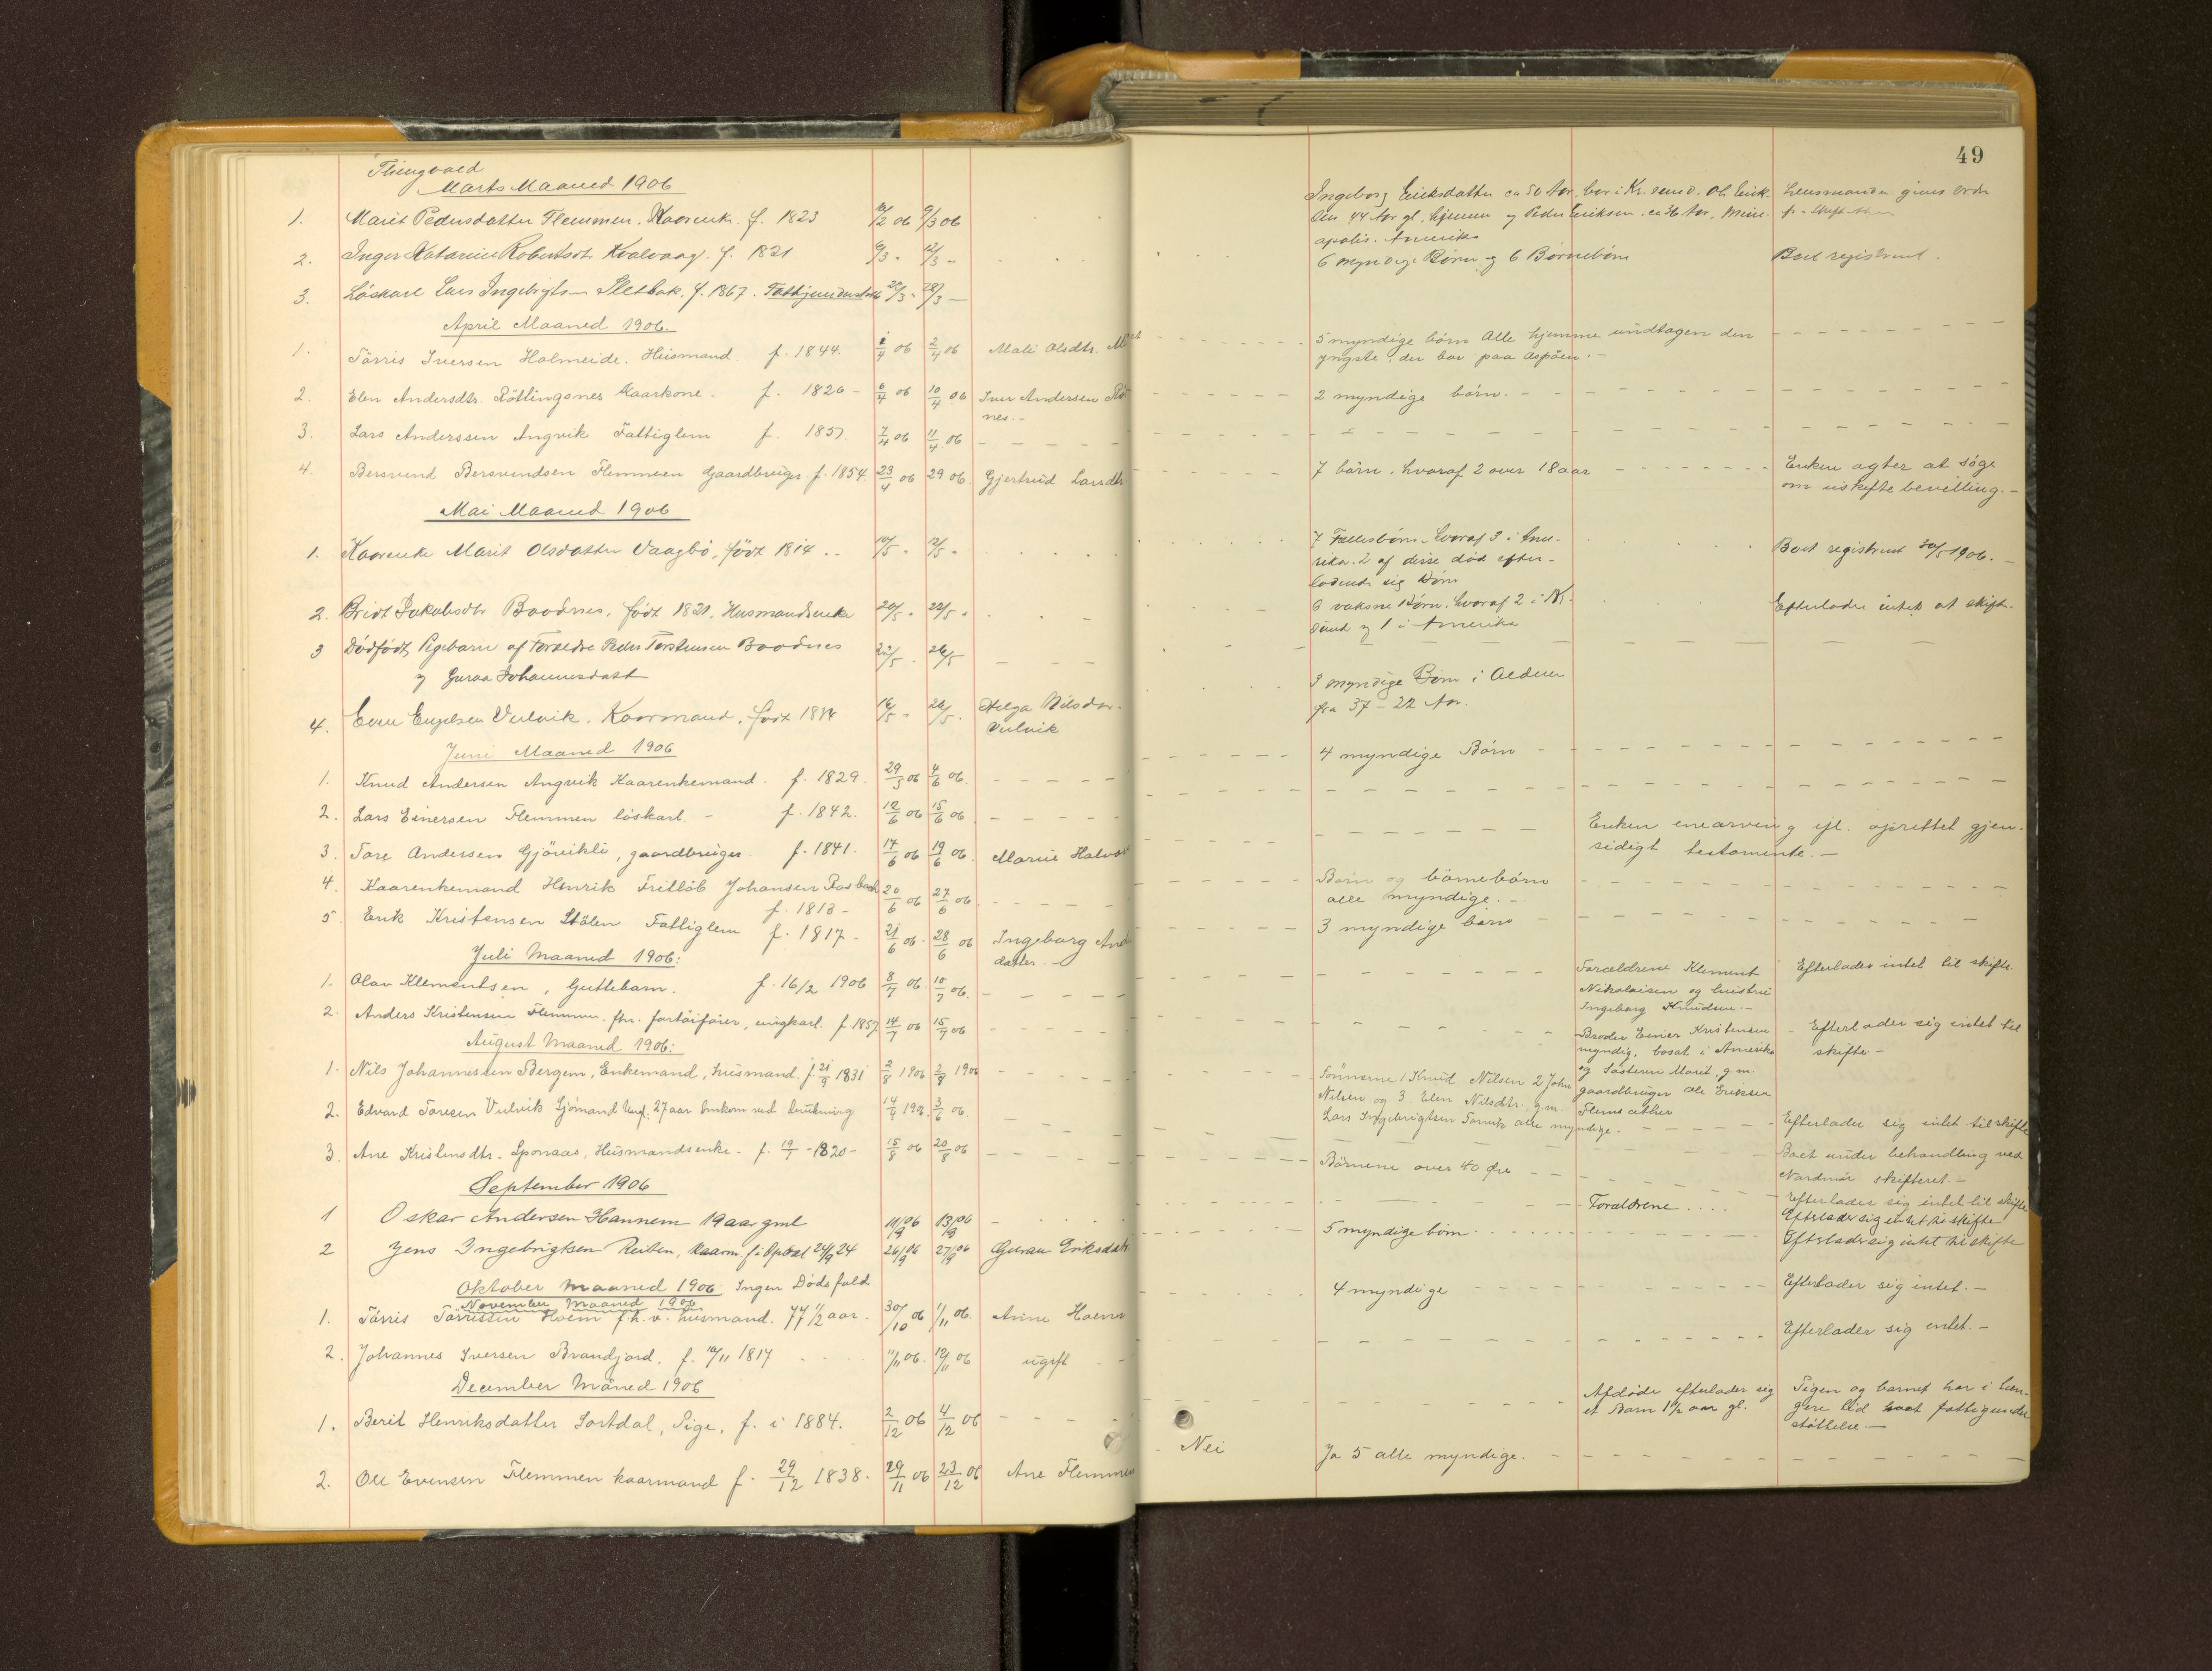 49
Thingvold
Marts Maaned 1906
1. Marit Pedersdatter Flemmen. Kaarenk. f. 1823 06 9/3 06
Ingeborg Eriksdatter ca 50 Aar, bor i Kr.sund. Ole Erik-
sen 44 Aar gl. hjemme og Peder Eriksen, ca 36 Aar, Mine-
apolis. Amerika
Lensmanden gives Ordre
2. Inger Katarine Robertsdt. Kvalvaag. f. 1821 9/3 " 12/3 "
6 myndige Børn og 6 Børnebørn
Boet registreret.
3. Löskarl Lars Ingebrigtsen Sletbak. f. 1867. 20/3 " 28/3 —
April Maaned 1906.
1. Tärris Iversen Halmeide. Husmand. f. 1844. 1/4 06 2/4 06 Mali Olsdtr.
5 myndige börn Alle hjemme undtagen den
yngste, der bor paa Aspöen. -
2. Elen Andersdtr. Rötlingsnes Kaarkone. f. 1826 - 6/4 06 10/4 06 Iver Andersen Rö
nes. -
2 myndige börn. -
3. Lars Anderssen Angvik Fattiglem f. 1857. 7/4 06 11/4 06
4. Bersvend Bersvendsen Flemmen Gaardbruger f. 1854. 23/4 06 29 06 Gjertrud Larsdtr.
7 börn, hvoraf 2 over 18 aar
Enken agter at söge
om uskiftebevilling. -
Mai Maaned 1906
1. Kaarenke Marit Olsdatter Vaagbö, födt 1814 .. 10/5 " 12/5 "
7 Fællesbörn, hvoraf 3 i Ame-
rika. 2 af disse död efter-
ladende sig Börn
Boet registreret 30/5 1906. -
2. Bridt Jakobsdtr Boodnes, födt 1821. Husmandsenke 20/5 " 22/5 "
6 voksne Börn, hvoraf 2 i Kr.
sund og 1 i Amerika
Efterlader intet at skifte.
3 Dödfödt Pigebarn af Forældre Peder Torstensen Boodnes 22/5 . 26/5
og Guroa Johannesdatt
4. Even Engelsen Vulvik. Kaarmand, födt 1834 16/5 " 26/5 . Helga Nilsdtr.
Vulvik
9 myndige Börn i Alderen
fra 37 - 22 Aar.
Juni Maaned 1906
1. Knud Andersen Angvik Kaarenkemand. f. 1829. 29/5 06 4/6 06.
4 myndige Börn
2. Lars Einersen Flemmen löskarl. - f. 1842. 12/6 06 15/6 06
3. Tore Andersen Gjövikli, gaardbruger f. 1841. 14/6 06 19/6 06. Marie Halvor
Enken enearving ifl. oprettet gjen-
sidigt testamente. -
4. Kaarenkemand Henrik Fritlöb Johansen Rasbach 20/6 06 27/6 06.
f. 1813 -
Börn og börnebörn
alle myndige. -
5. Erik Kristensen Stölen Fattiglem f. 1817 - 21/6 06 - 28/6 06 Ingeborg And
datter. -
3 myndige börn
Juli Maaned 1906:
1. Olav Klementsen, Guttebarn. f. 16/2 1906 8/7 06. 10/7 06.
Forældrene Klement
Nikolaisen og hustru
Ingeborg Knudsen. -
Efterlader intet til skifte.
2. Anders Kristensen Flemmen. fhr. fartöifører, ungkarl. f. 1857 14/7 06 15/7 06
Broder Einer Kristensen
myndig, bosat i Amerika
og Søsteren Marit, g.m.
gaardbruger Ole Eriksen
Flemsæther
Efterlader sig intet til
skifte -
August Maaned 1906:
1. Nils Johannessen Bergem, Enkemand, husmand. f 21/9 1831 2/8 1906 2/8 1906
Sönnerne 1 Knud Nilsen 2 John
Nilsen og 3. Elen Nilsdtr. g.m.
Lars Ingebrigtsen Torvik alle myndige. -
Efterlader sig intet til skifte
2. Edvard Toresen Vulvik Sjömand Ungk. 27 aar omkom ved drukning 3/6 06.
Boet under behandling ved
Nordmör skifteret. -
3. Ane Kristensdtr. Sponaas, Husmandsenke. f. 19/7 - 1820 - 15/8 06 20/8 06
Börnene over 40 Öre
Efterlader sig intet til skifte
September 1906
1 Oskar Andersen Hannem 19 aar gml 11/9 06 13/9 06
Forældrene ....
Efterlader sig intet til skifte
2 Jens Ingebrigtsen Reiten, Kaarm f i Opdal 24/9 24 26/9 06 27/9 06 Gurau Eriksdatr
5 myndige börn
Efterlader sig intet til skifte
Oktober Maaned 1906 Ingen Dödsfald
November Maaned 1906
1. Tärris Tärrissen Hoem f.h.v. husmand. 77 1/2 aar. 30/10 06 1/11 06. Anne Hoem
4 myndige
Efterlader sig intet. -
2. Johannes Iversen Brandjord, f. 10/11 1817 11/11 06. 12/11 06 ugift
Efterlader sig intet. -
December Måned 1906
1. Berit Henriksdatter Sortdal, Pige, f. i 1884. 2/12 06 4/12 06
Afdöde efterlader sig
et Barn 1 1/2 aar gl.
Pigen og barnet har i læn-
gere tid havt fattigunder
stöttelse -
2. Ole Evensen Flemmen kaarmand f. 29/12 1838. 29/11 06 23/12 06 Ane Flemmen
Nei
Ja 5 alle myndige.